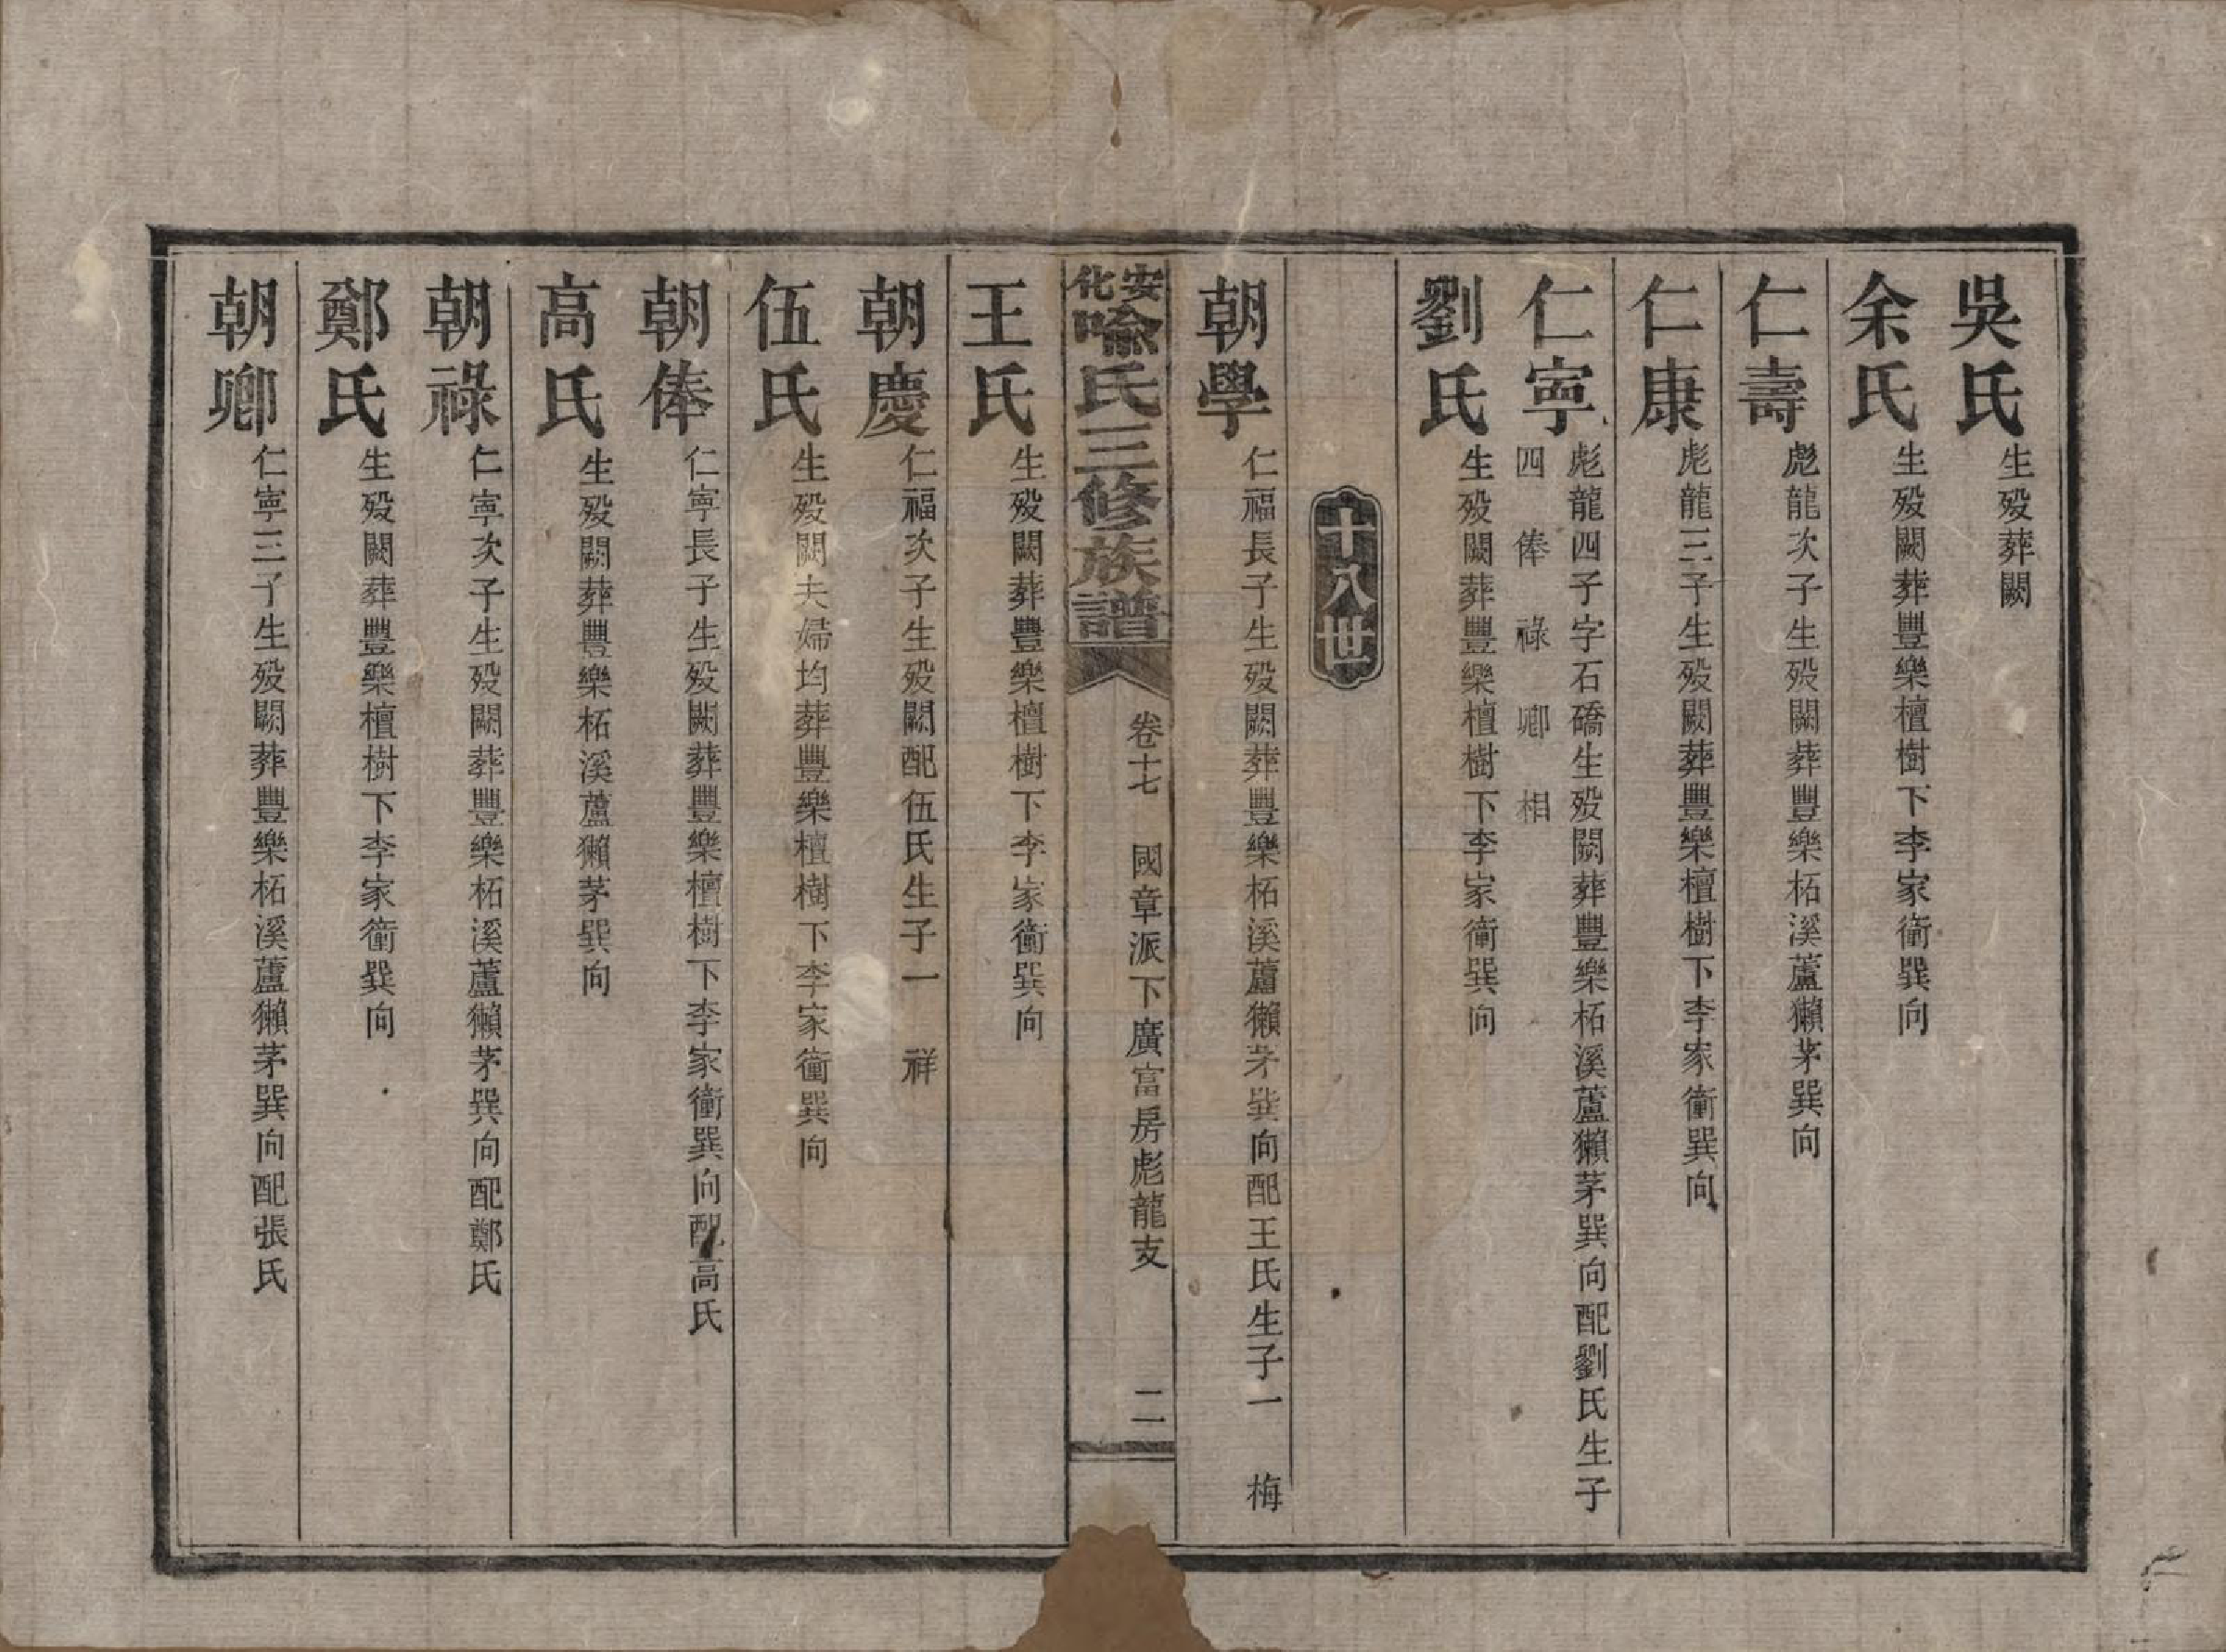 吳氏生歿葬闕
余氏生歿闕葬豐樂檀樹下李家衝巽向
仁壽彪龍次子生歿闕葬豐樂柘溪蘆獺茅巽向
仁康彪龍三子生歿闕葬豐樂檀樹下李家衝巽向
仁寧彪龍四子字石礄生歿闕葬豐樂柘溪蘆獺茅巽向配劉氏生子
四 俸 祿 卿 相
劉氏生歿闕葬豐樂檀樹下李家衝巽向
十八世
朝學仁福長子生歿闕葬豐樂柘溪蘆獺茅巽向配王氏生子一 梅
安化喻氏三修族譜 卷十七 國章派下廣富房彪龍支 二
王氏生歿闕葬豐樂檀樹下李家衝巽向
朝慶仁福次子生歿闕配伍氏生子一 祥
伍氏生歿闕夫婦均葬豐樂檀樹下李家衝巽向
朝俸仁寧長子生歿闕葬豐樂檀樹下李家衝巽向配高氏
高氏生歿闕葬豐樂柘溪蘆獺茅巽向
朝祿仁寧次子生歿闕葬豐樂柘溪蘆獺茅巽向配鄭氏
鄭氏生歿闕葬豐樂檀樹下李家衝巽向
朝卿仁寧三子生歿闕葬豐樂柘溪蘆獺茅巽向配張氏